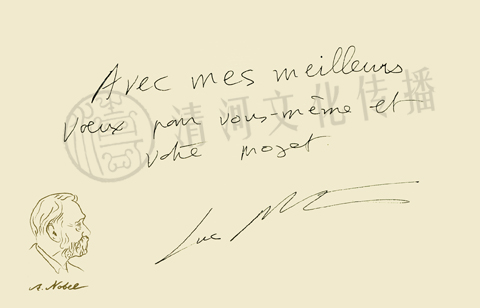 Avec mes meilleurs
voeux pour vous-même et
votre
清河文化传播
Luc
A. Nobel